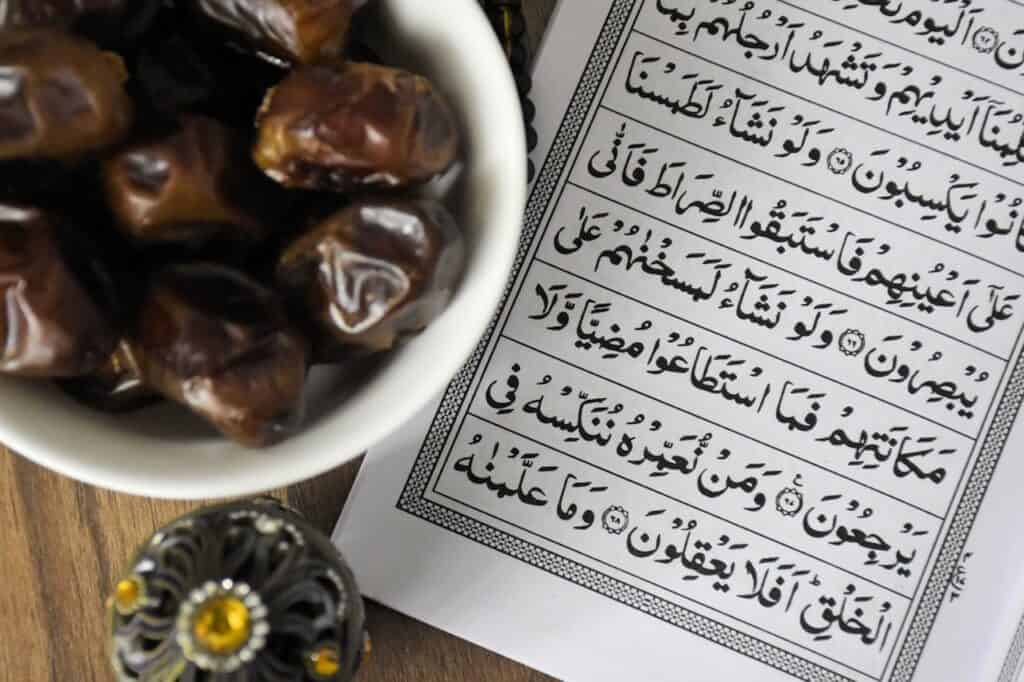 اَلْيَوْمَ
وَتَشْهَدُ اَرْجُلُهُمْ بِمَا
يَكْسِبُوْنَ ۝٦٥ وَلَوْ نَشَآءُ لَطَمَسْنَا
عَلٰٓى اَعْيُنِهِمْ فَاسْتَبَقُوا الصِّرَاطَ فَاَنّٰى
يُبْصِرُوْنَ ۝٦٦ وَلَوْ نَشَآءُ لَمَسَخْنٰهُمْ عَلٰى
مَكَانَتِهِمْ فَمَا اسْتَطَاعُوْا مُضِيًّا وَّلَا
يَرْجِعُوْنَ ۝٦٧ وَمَنْ نُّعَمِّرْهُ نُنَكِّسْهُ فِى
الْخَلْقِ ؕ اَفَلَا يَعْقِلُوْنَ ۝٦٨ وَمَا عَلَّمْنٰهُ